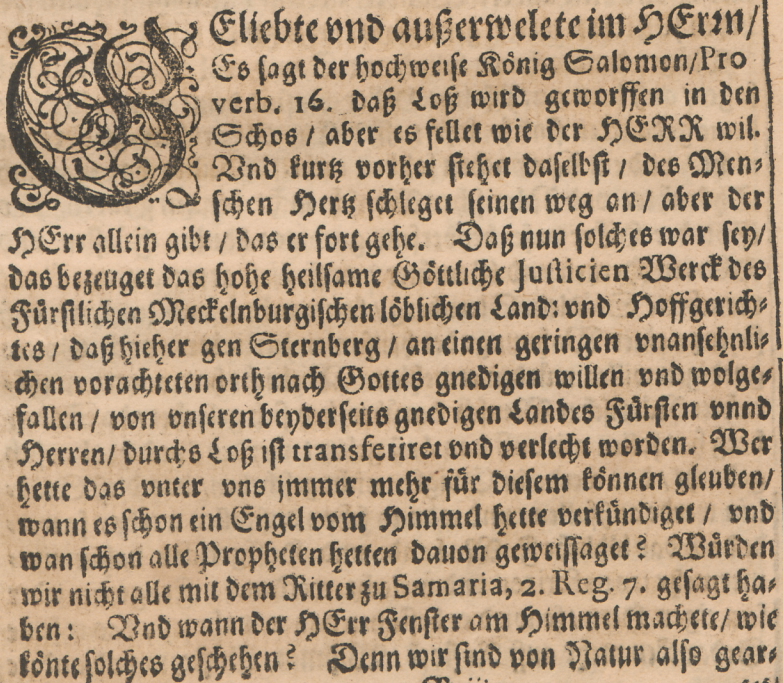 GEliebte vnd außerwelete im HErrn/
Es sagt der hochweise König Salomon/Pro
verb. 16. daß Loß wird geworffen in den
Schos / aber es fellet wie der HERR wil.
Vnd kurtz vorher stehet daselbst / des Men-
schen Hertz schleget seinen weg an / aber der
HErr allein gibt / das er fort gehe. Daß nun solches war sey/
das bezeuget das hohe heilsame Göttliche Justicien Werck des
Fürstlichen Meckelnburgischen löblichen Land: vnd Hoffgerich-
tes / daß hieher gen Sternberg / an einen geringen vnansehnli-
chen vorachteten orth nach Gottes gnedigen willen vnd wolge-
fallen / von vnseren beyderseits gnedigen Landes Fürsten vnnd
Herren/ durchs Loß ist transferiret vnd verlecht worden. Wer
hette das vnter vns jmmer mehr für diesem können gleuben/
wann es schon ein Engel vom Himmel hette verkündiget / vnd
wan schon alle Propheten hetten dauon geweissaget? Würden
wir nicht alle mit dem Ritter zu Samaria, 2. Reg. 7. gesagt ha-
ben: Vnd wann der HErr Fenster am Himmel machete/ wie
könte solches geschehen? Denn wir sind von Natur also gear-